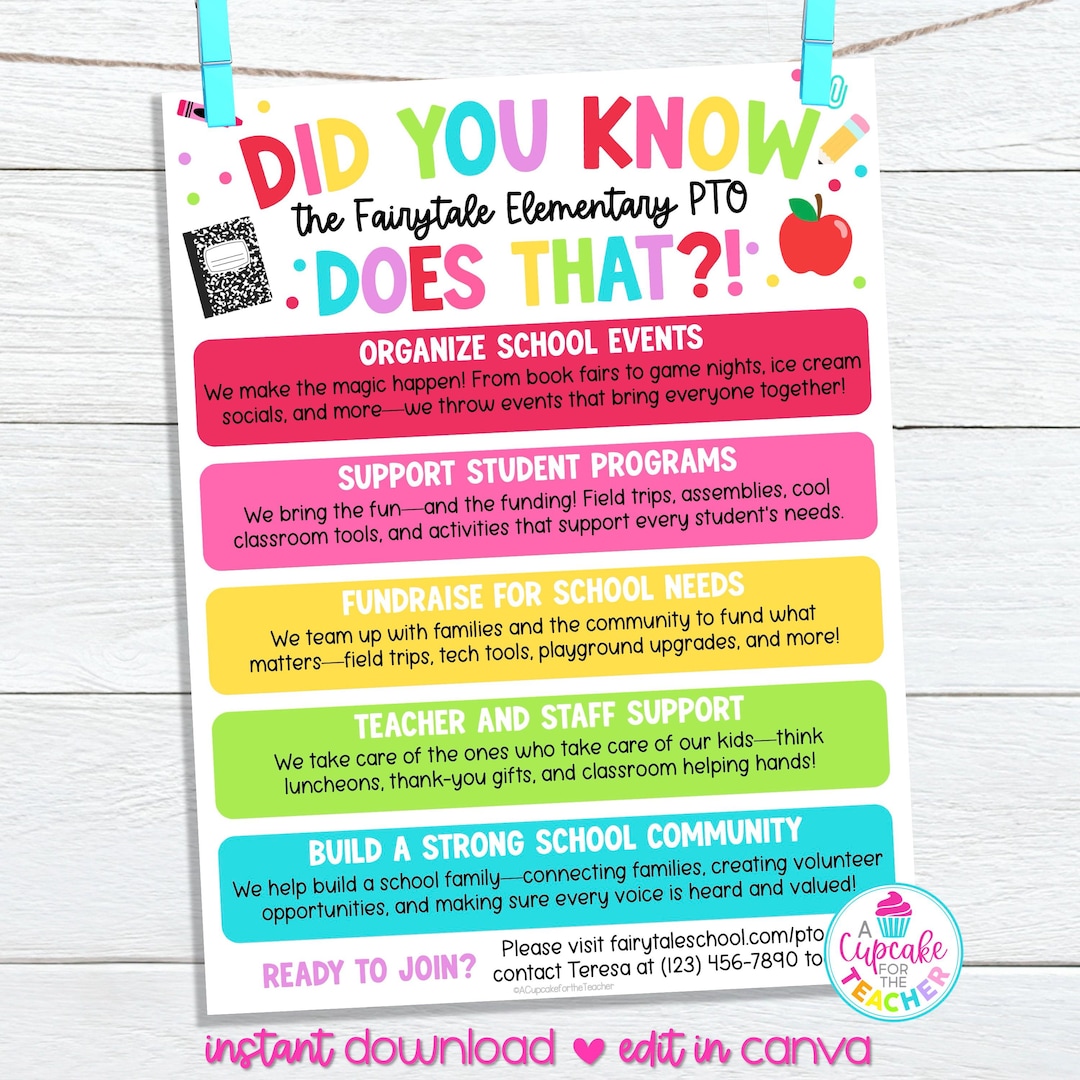 DID YOU KNOW
the Fairytale Elementary PTO
DOES THAT?!
ORGANIZE SCHOOL EVENTS
We make the magic happen! From book fairs to game nights, ice cream
socials, and more—we throw events that bring everyone together!
SUPPORT STUDENT PROGRAMS
We bring the fun—and the funding! Field trips, assemblies, cool
classroom tools, and activities that support every student's needs.
FUNDRAISE FOR SCHOOL NEEDS
We team up with families and the community to fund what
matters—field trips, tech tools, playground upgrades, and more!
TEACHER AND STAFF SUPPORT
We take care of the ones who take care of our kids—think
luncheons, thank-you gifts, and classroom helping hands!
BUILD A STRONG SCHOOL COMMUNITY
We help build a school family—connecting families, creating volunteer
opportunities, and making sure every voice is heard and valued!
READY TO JOIN?
Please visit fairytaleschool.com/pto
contact Teresa at (123) 456-7890 to
©ACupcakefortheTeacher
A
Cupcake
FOR
THE
TEACHER
instant download ♥ edit in canva